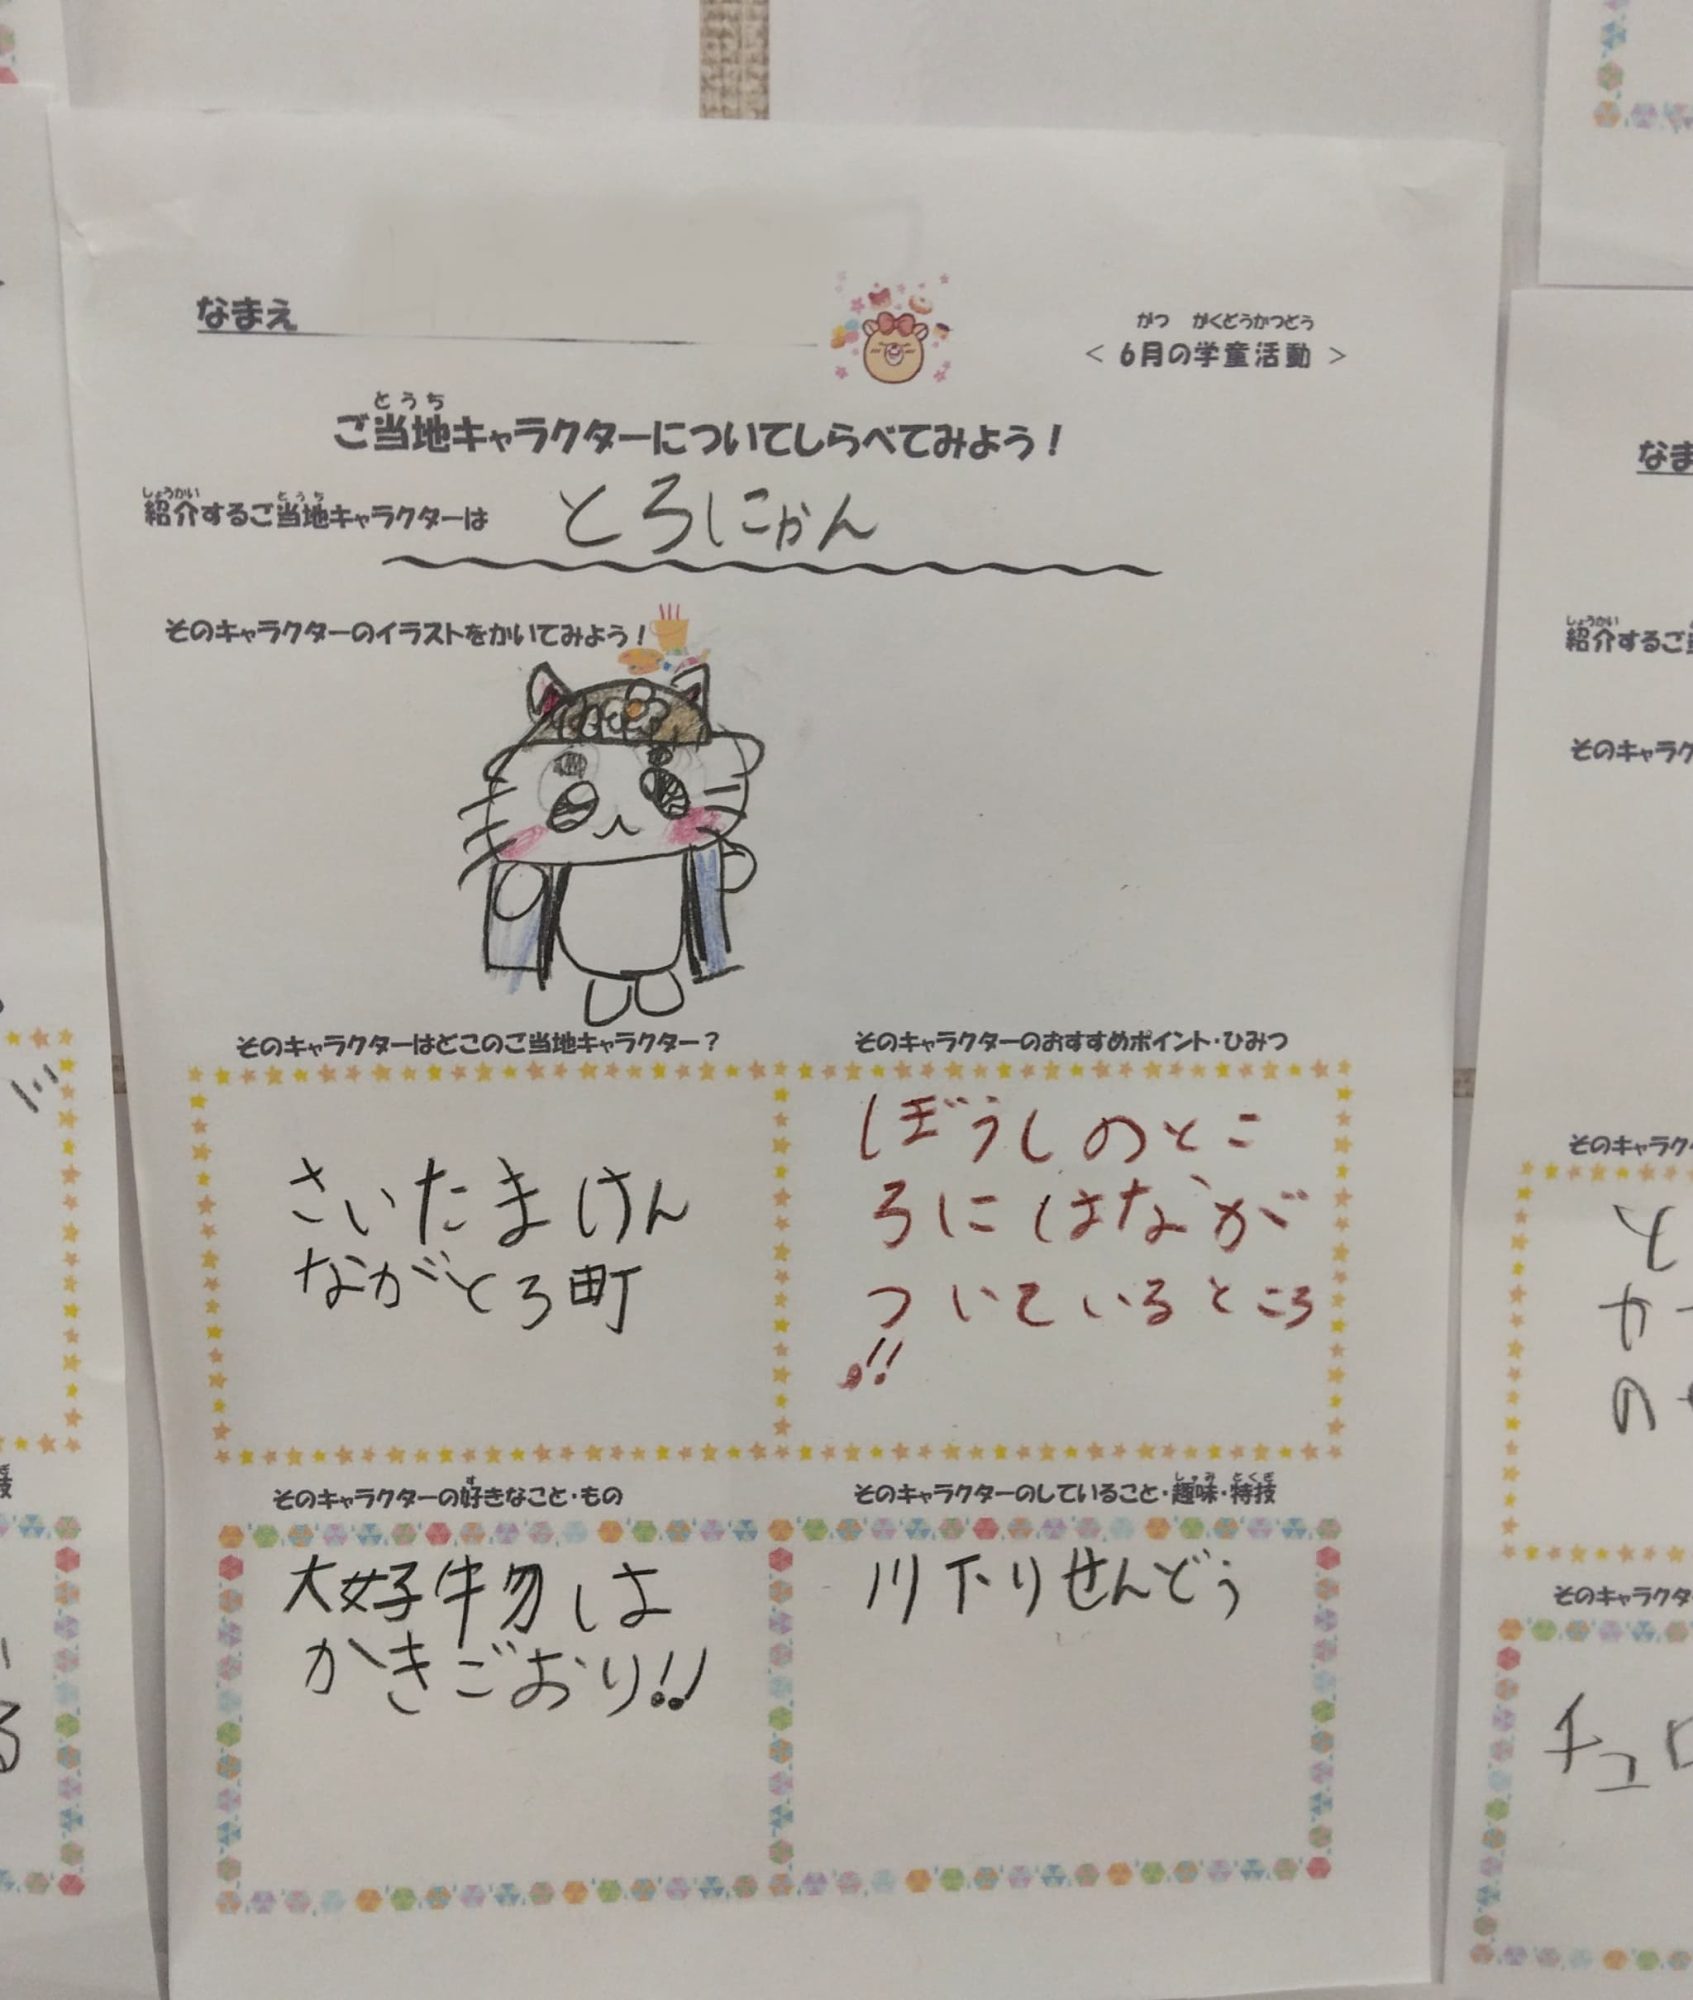 なまえ
がつ がくどうかつどう
< 6月の学童活動 >
とうち
ご当地キャラクターについてしらべてみよう！
しょうかい とうち
紹介するご当地キャラクターは とろにゃん
そのキャラクターのイラストをかいてみよう！
そのキャラクターはどこのご当地キャラクター？
さいたまけん
ながとろ町
そのキャラクターのおすすめポイント・ひみつ
ぼうしのとこ
ろにはなが
ついているところ
!!
す
そのキャラクターの好きなこと・もの
大好物は
かきごおり!!
しゅみ とくぎ
そのキャラクターのしていること・趣味・特技
川下りせんどう
なま
しょうかい
紹介するご
そのキャラク
そのキャラク
と
か
の
そのキャラクタ
チュロ
技
る